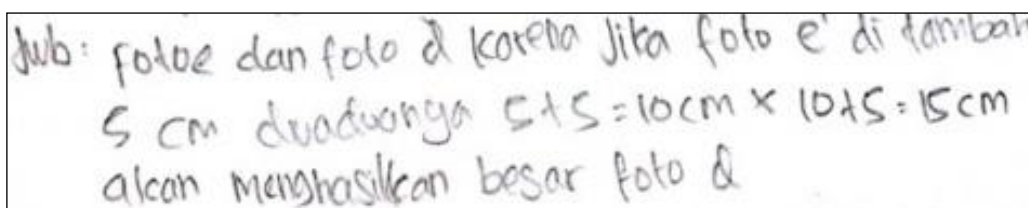 Jwb: Fotoe dan foto d karena Jika foto e di tambah
5 cm duaduanya 5+5=10cm × 10+5=15cm
akan menghasilkan besar foto d